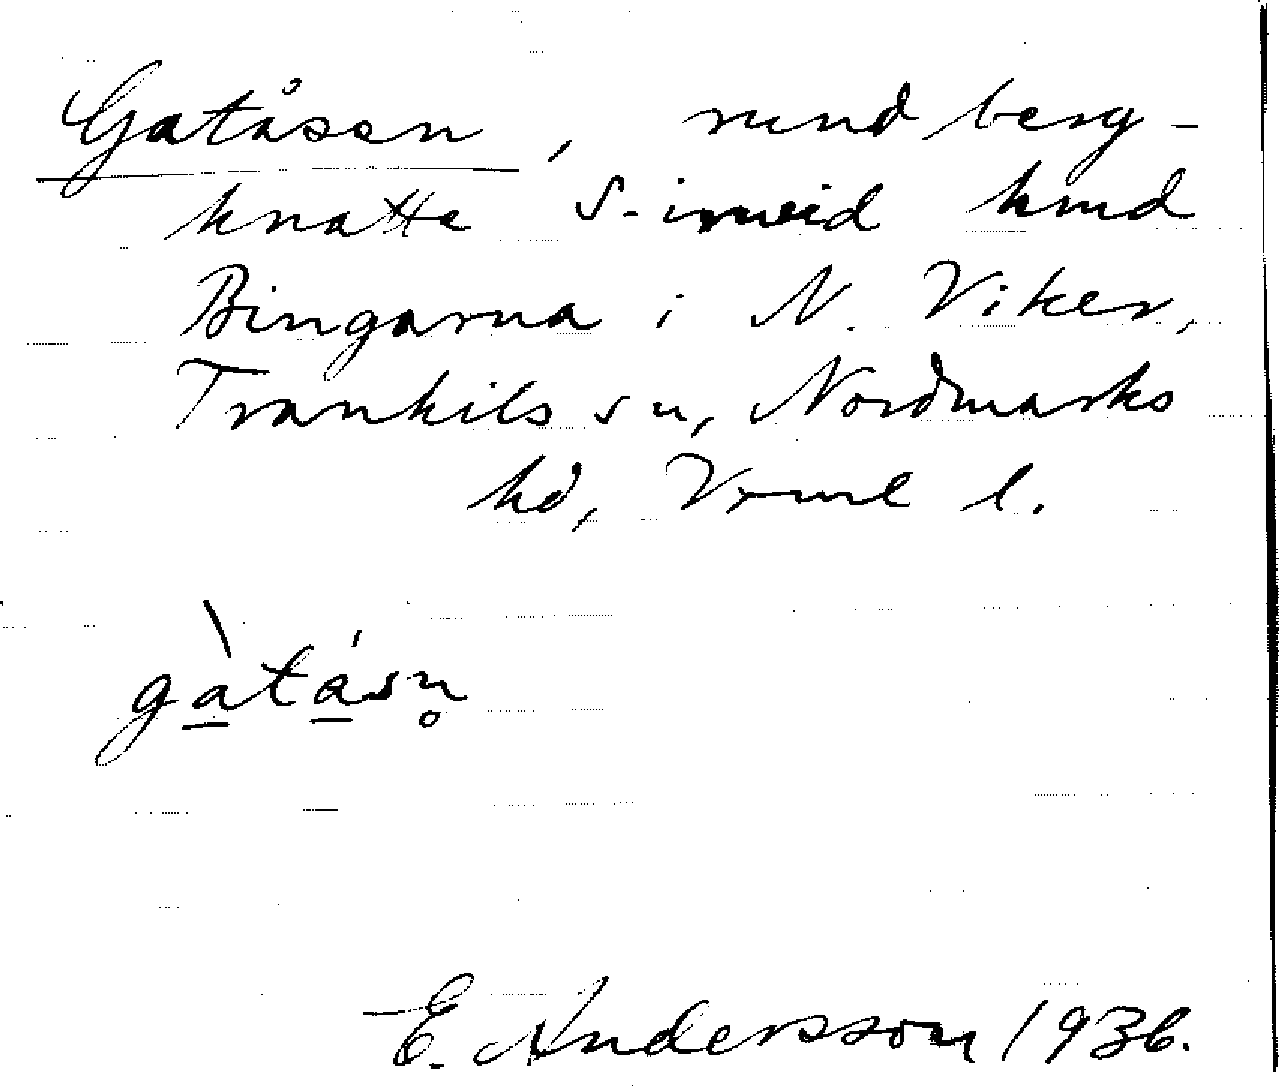 Gatåsen, rund berg-
knatte S. invid hmd
Bingarna i N. Viker,
Trankils sn, Nordmarks
hd, Vrml l.
gàtásn̥
E. Andersson 1936.